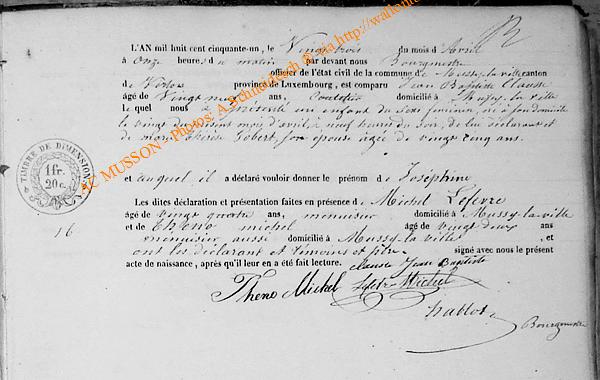 L'AN mil huit cent cinquante-un, le Vingt trois du mois d'Avril
à onze heures, du matin par devant nous Bourgmestre
officier de l'état civil de la commune de Mussy-la-ville canton
de Virton province de Luxembourg, est comparu Jean Baptiste Clause
âgé de Vingt neuf ans, domicilié à Mussy-la-ville
le quel nous a présenté un enfant du sexe féminin, né à son domicile
le vingt du présent mois d'avril, à neuf heures du soir, de lui déclarant et
de marie thérèse Gobert, son épouse âgée de vingt cinq ans.
et auquel il a déclaré vouloir donner le prénom de Joséphine
Les dites déclaration et présentation faites en présence de Michel Lefevre
âgé de vingt quatre ans, menuisier domicilié à Mussy-la-ville
et de Theno michel âgé de vingt deux ans
menuisier aussi domicilié à Mussy-la ville, et
ont les déclarant et témoins signé avec nous le présent
acte de naissance, après qu'il leur en a été fait lecture.
clause Jean Baptiste
Theno Michel
Michel
Bourgmestre
TIMBRE DE DIMENSION
1 fr.
20 c.
16
AC MUSSON - Photos: A.Schmidt